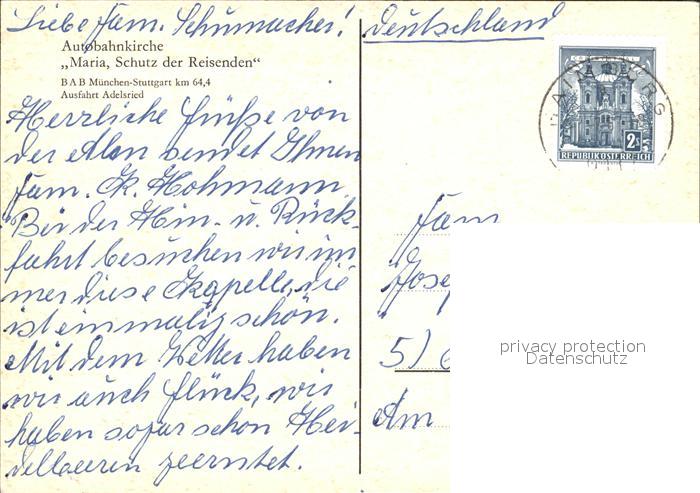 Liebe Fam. Schumacher!
Deutschland
Autobahnkirche
„Maria, Schutz der Reisenden“
BAB München-Stuttgart km 64,4
Ausfahrt Adelsried
Herzliche Grüße von
der Alm sendet Ihnen
Fam. K. Hohmann
Bei der Hin- u. Rück-
fahrt besuchen wir im
mer diese Kapelle, die
ist einmalig schön.
Mit dem Wetter haben
wir auch Glück, wir
haben sogar schon Hei-
delbeeren geerntet.
2S
REPUBLIK ÖSTERREICH
Fam
Josep
51
Am
privacy protection
Datenschutz